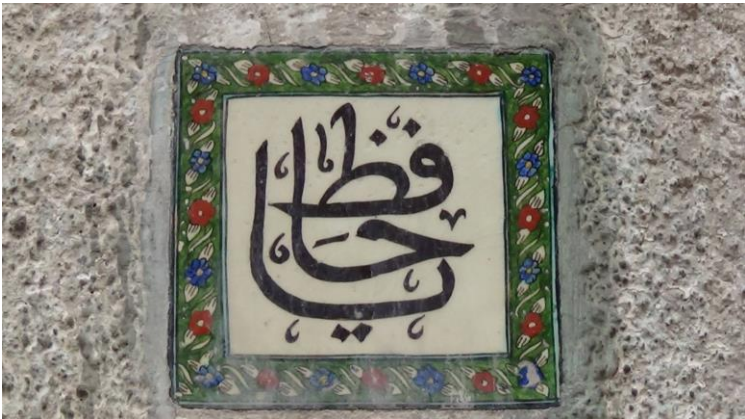 يا حافظ